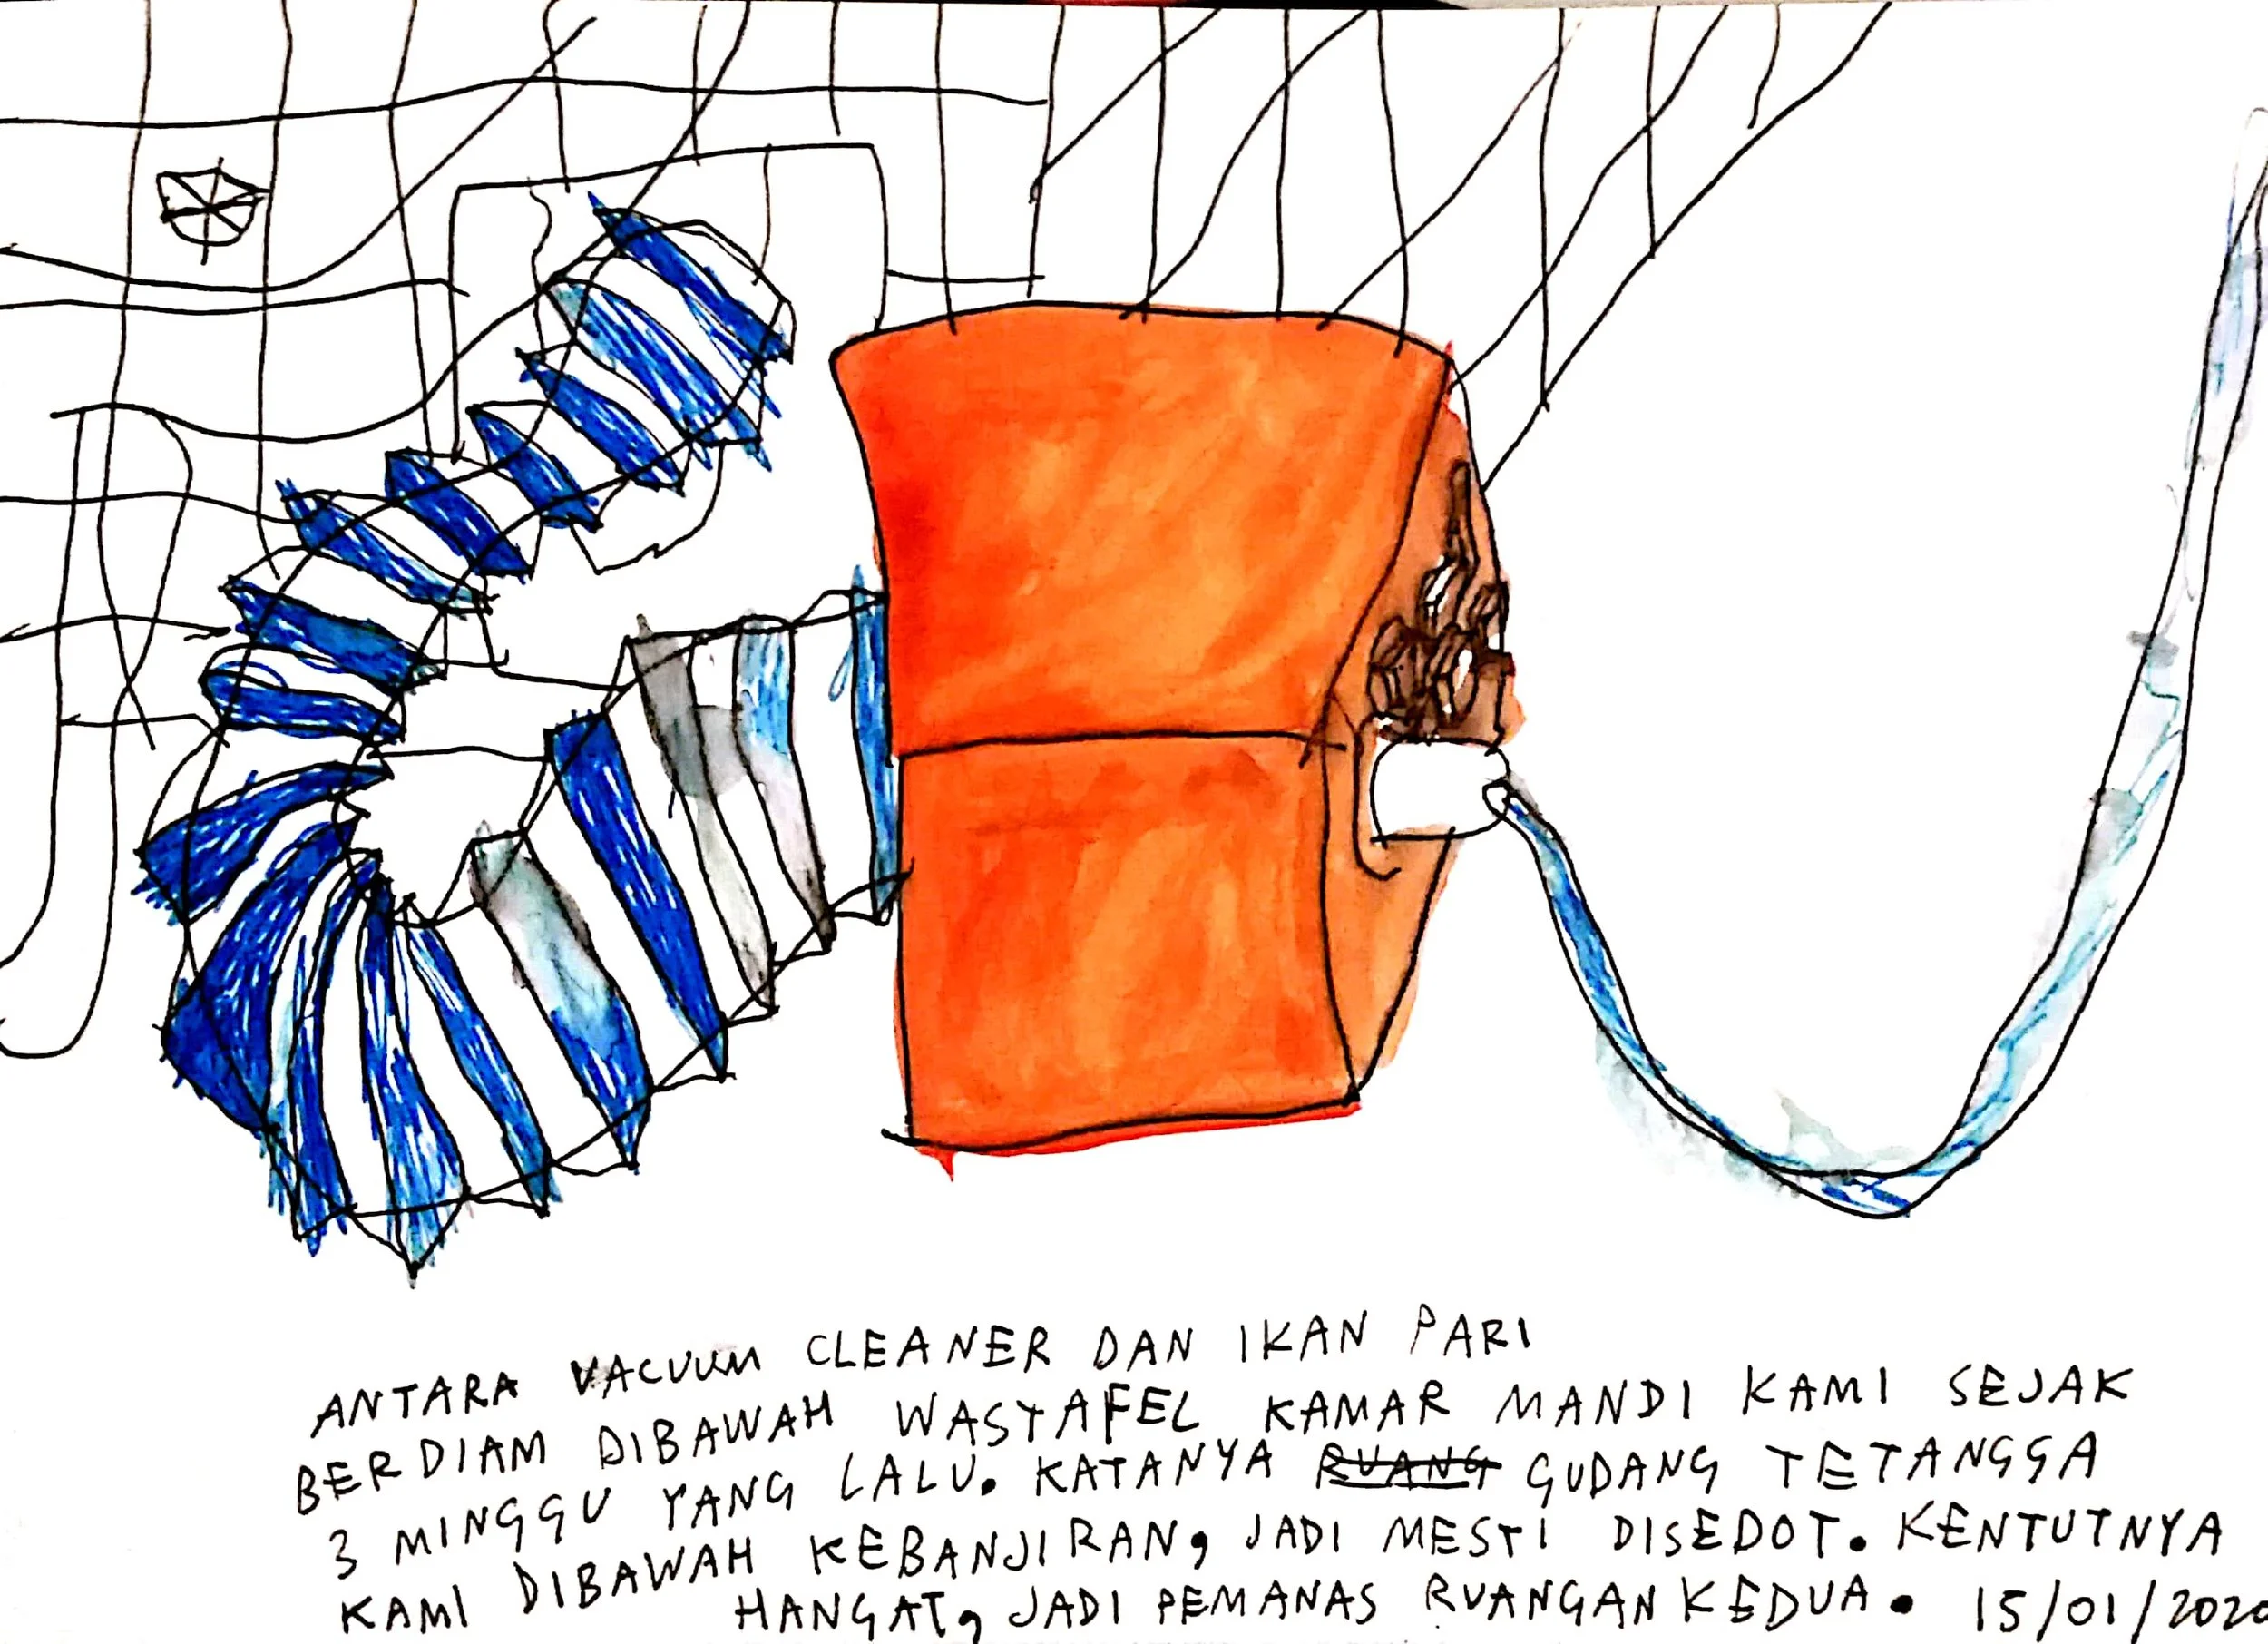 ANTARA VACUUM CLEANER DAN IKAN PARI
BERDIAM DIBAWAH WASTAFEL KAMAR MANDI KAMI SEJAK
3 MINGGU YANG LALU. KATANYA RUANG GUDANG TETANGGA
KAMI DIBAWAH KEBANJIRAN, JADI MESTI DISEDOT. KENTUTNYA
HANGAT, JADI PEMANAS RUANGAN KEDUA. 15/01/2020